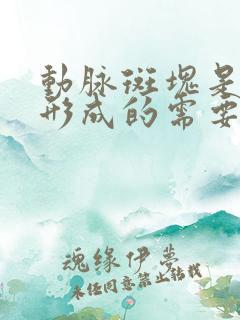 動脈斑塊是
形成的需要
魂缘伊梦
未经同意禁止转载